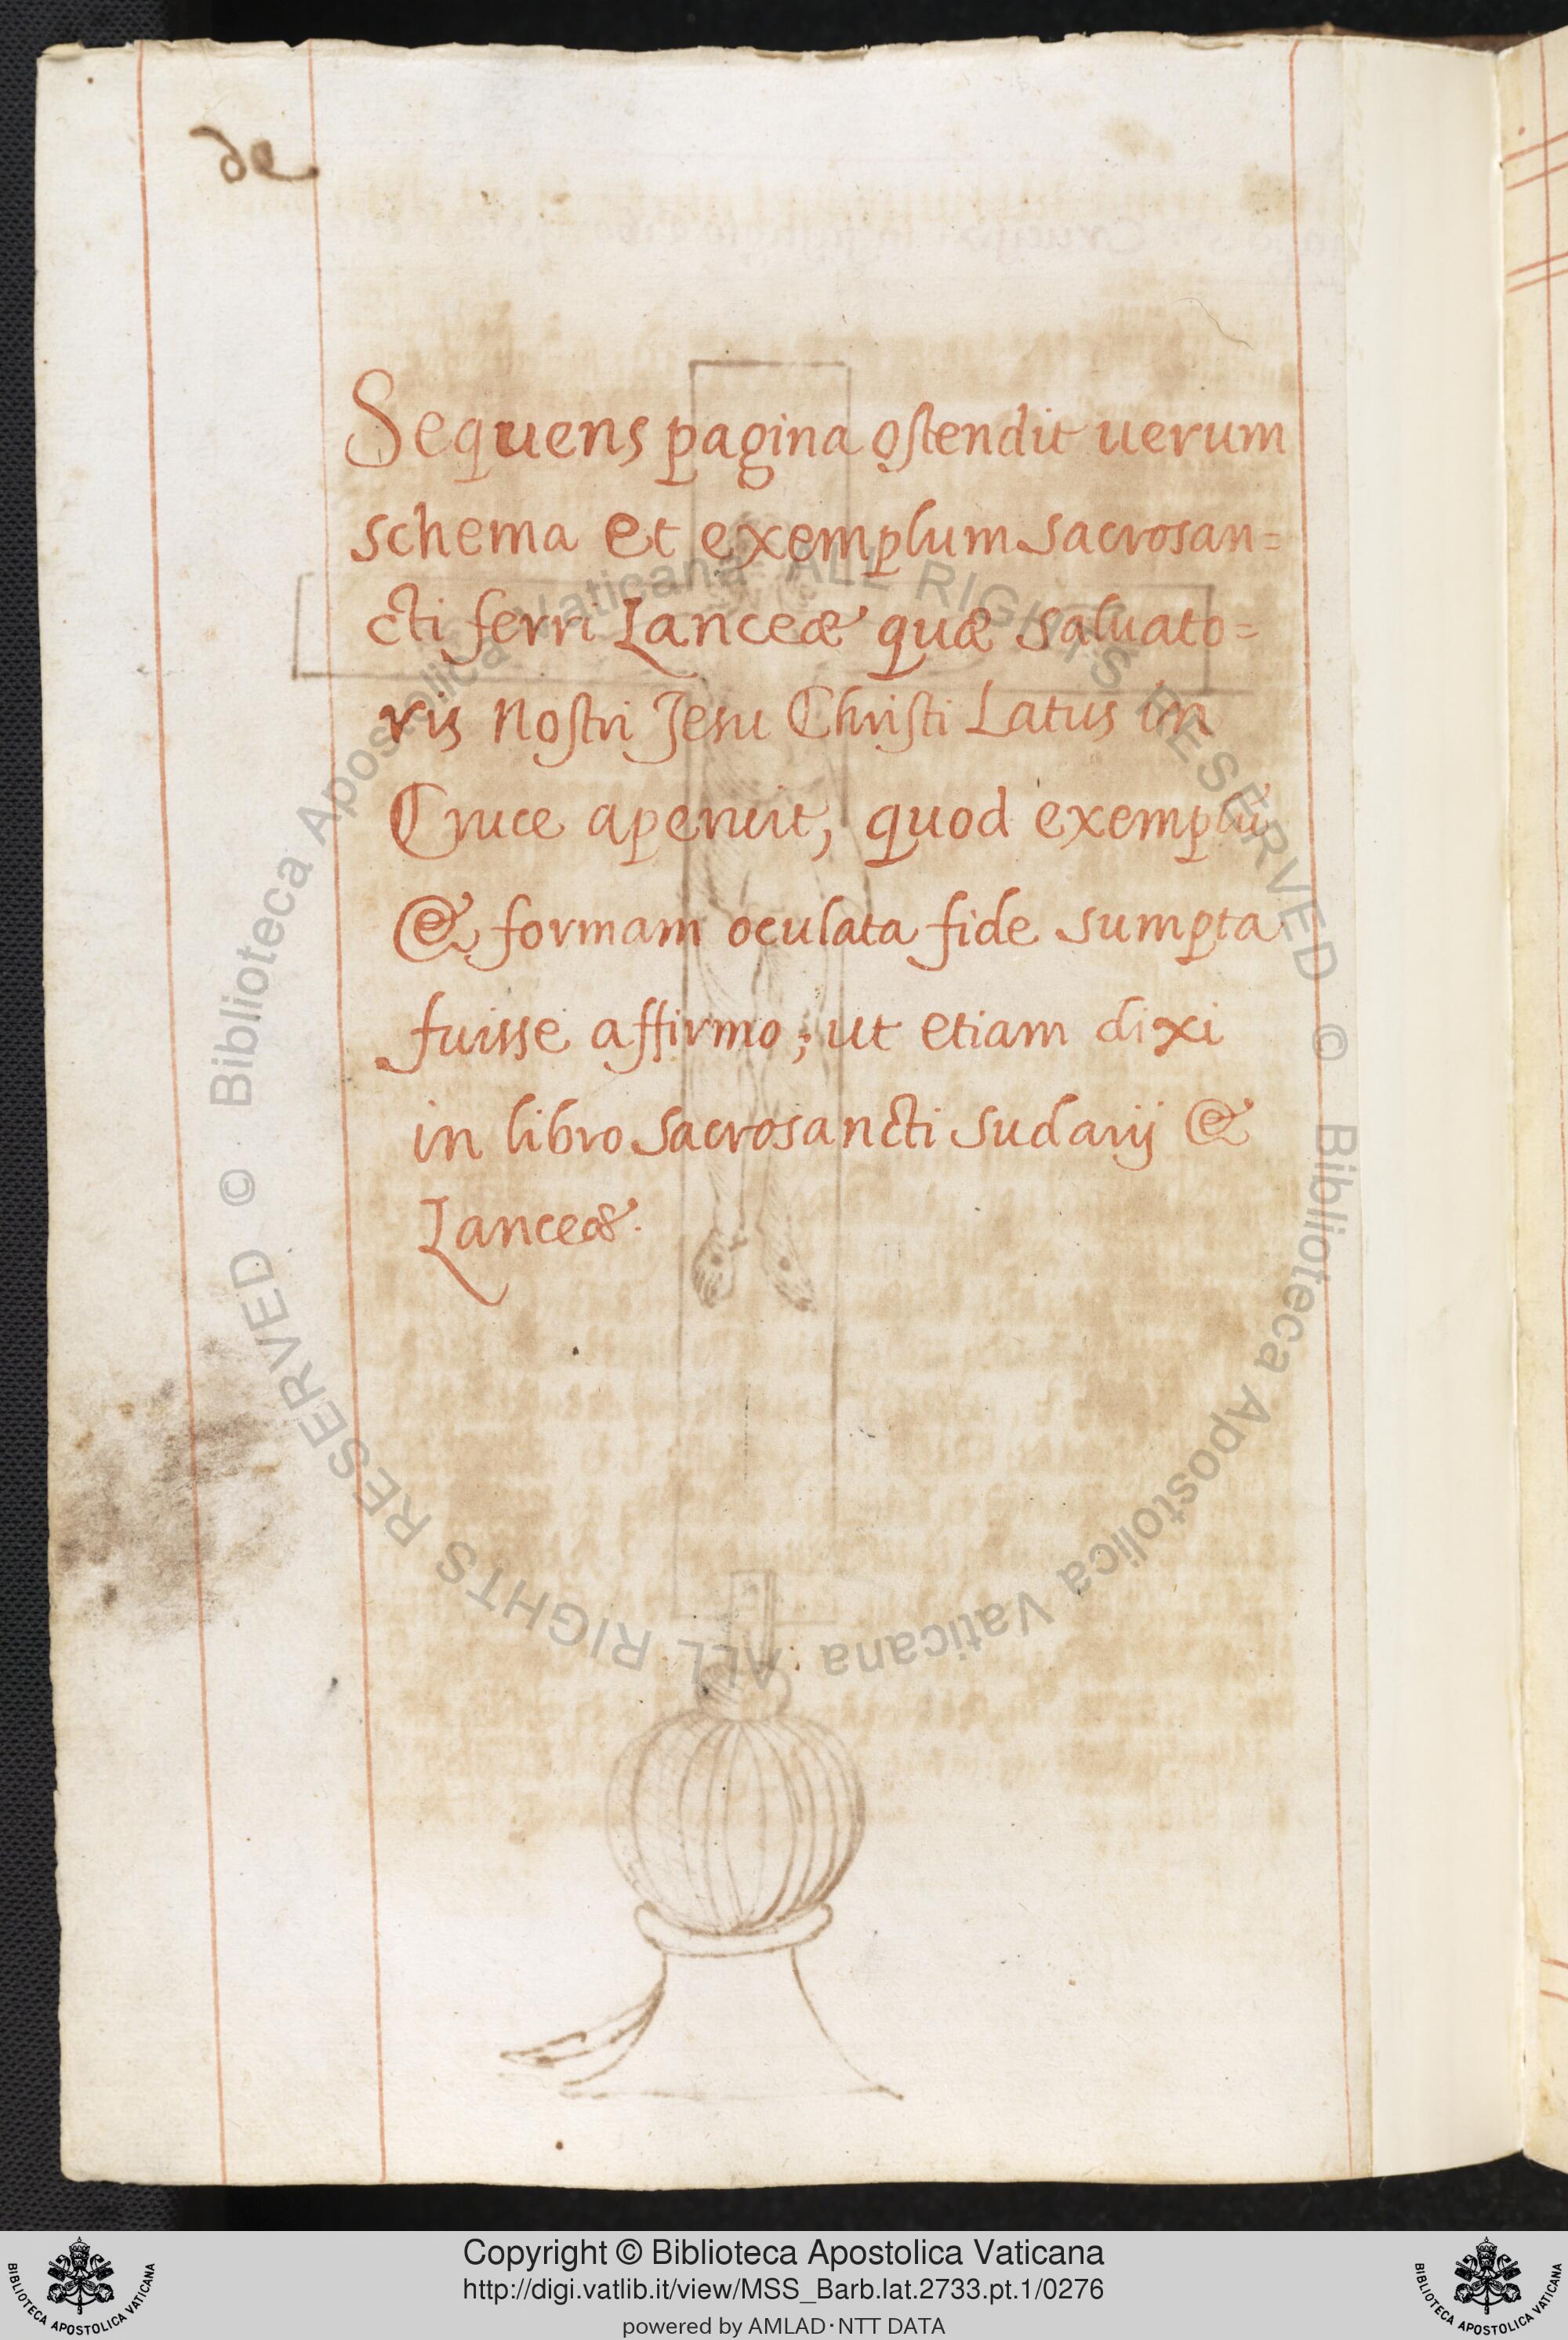 de
Sequens pagina ostendit uerum
schema et exemplum sacrosan=
cti ferri Lanceæ quæ saluato=
ris Nostri Jesu Christi Latus in
Cruce aperuit, quod exemplũ
& formam oculata fide sumpta
fuisse affirmo; ut etiam dixi
in libro sacrosancti sudarij &
Lanceæ.
© Biblioteca Apostolica Vaticana ALL RIGHTS RESERVED © Biblioteca Apostolica Vaticana ALL RIGHTS RESERVED
Copyright © Biblioteca Apostolica Vaticana
http://digi.vatlib.it/view/MSS_Barb.lat.2733.pt.1/0276
powered by AMLAD·NTT DATA
BIBLIOTECA APOSTOLICA VATICANA
BIBLIOTECA APOSTOLICA VATICANA